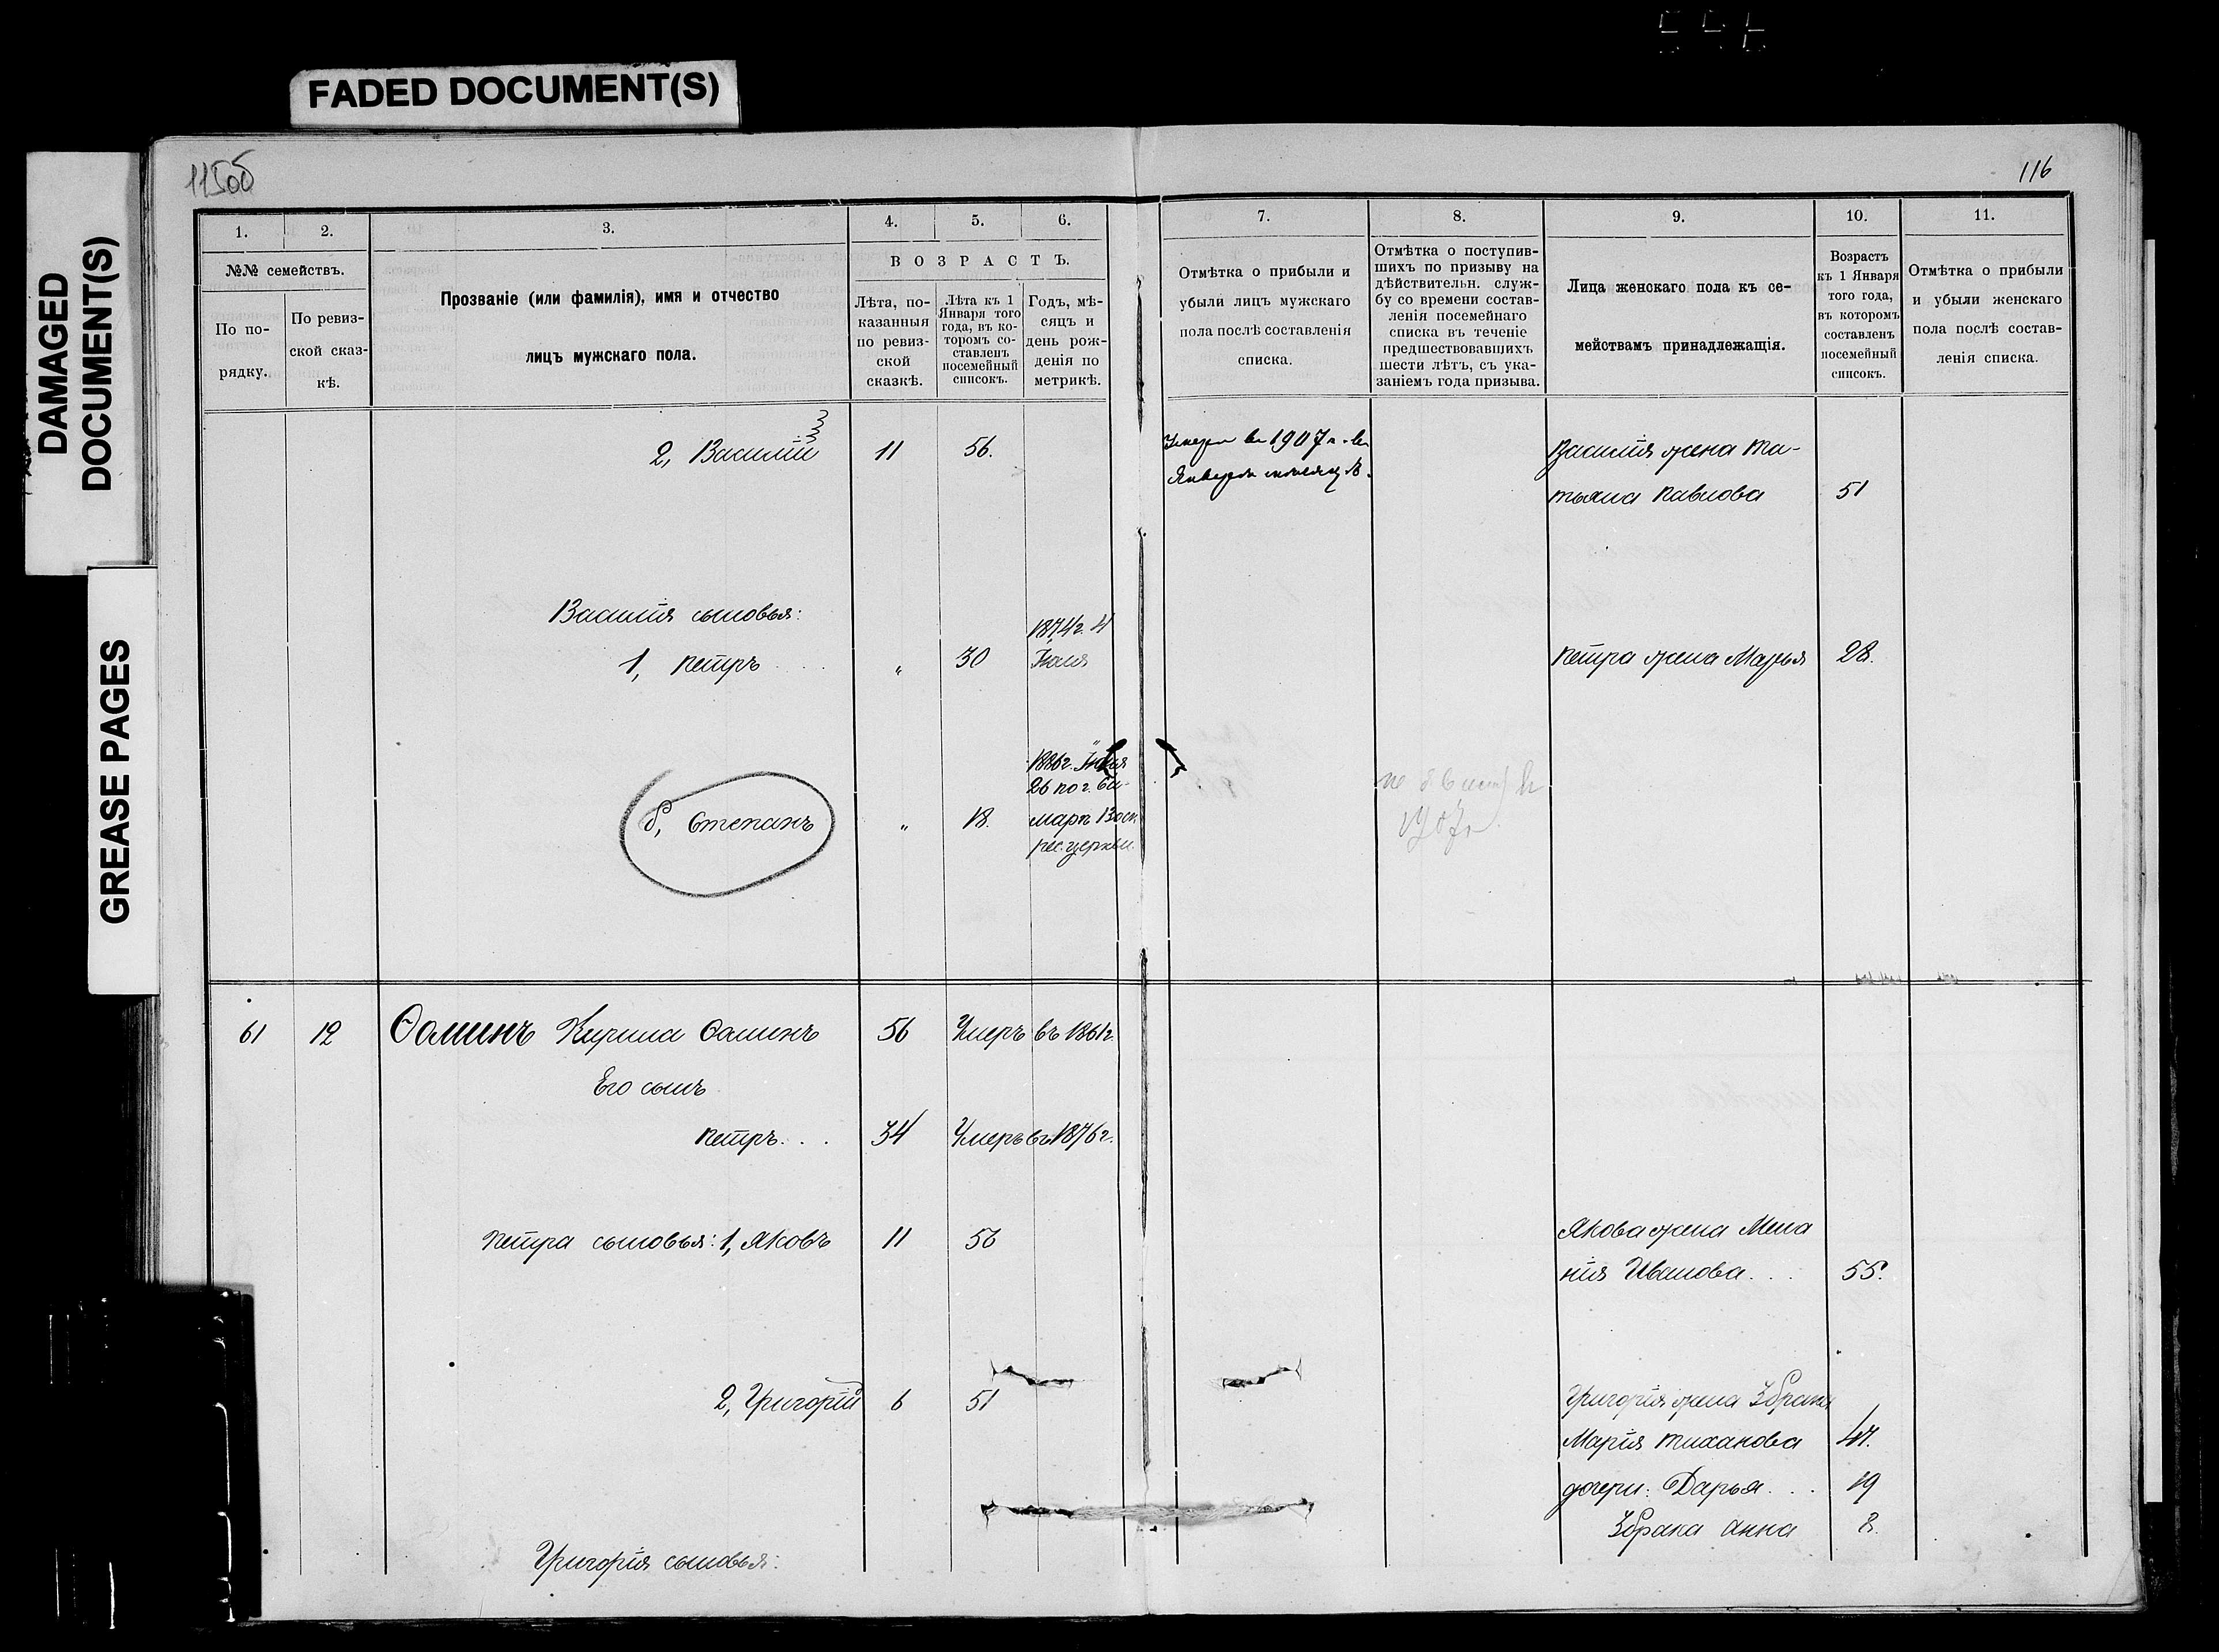 FADED DOCUMENT(S)
DAMAGED
DOCUMENT(S)
GREASE PAGES
115об
116
1.
2.
3.
4.
5.
6.
7.
8.
9.
10.
11.
№№ семействъ.
По по-
рядку.
По ревиз-
ской сказ-
кѣ.
Прозваніе (или фамилія), имя и отчество
лицъ мужскаго пола.
ВОЗРАСТЪ.
Лѣта, по-
казанныя
по ревиз-
ской
сказкѣ.
Лѣта къ 1
Января того
года, въ ко-
торомъ со-
ставленъ
посемейный
списокъ.
Годъ, мѣ-
сяцъ и
день рож-
денія по
метрикѣ.
Отмѣтка о прибыли и
убыли лицъ мужскаго
пола послѣ составленія
списка.
Отмѣтка о поступив-
шихъ по призыву на
дѣйствительн. служ-
бу со времени состав-
ленія посемейнаго
списка въ теченіе
предшествовавшихъ
шести лѣтъ, съ ука-
заніемъ года призыва.
Лица женскаго пола къ се-
мействамъ принадлежащія.
Возрастъ
къ 1 Января
того года,
въ которомъ
составленъ
посемейный
списокъ.
Отмѣтка о прибыли
и убыли женскаго
пола послѣ состав-
ленія списка.
2, Василій 11 56.
Умеръ въ 1907 г. въ
Январѣ мѣсяцѣ.
Василія жена Та-
тьяна Павлова 51
Василія сыновья:
1, Петръ " 30
1874г. 4
Іюля
Петра жена Марья 28.
Степанъ " 18.
1886г.
26 по г. Са-
марѣ Воск
рес. церкви.
1907г
61 12 Ѳоминъ Кирила Ѳоминъ 56 Умеръ въ 1861г.
Его сынъ
Петръ... 34 Умеръ въ 1876г.
Петра сыновья: 1, Яковъ 11 56
Якова жена Мела
нія Иванова... 55.
2, Григорій 6 51
Григорія жена 3брака
Марія Тиханова
дочери: Дарья... 19
3брака Анна 8.
Григорія сыновья: